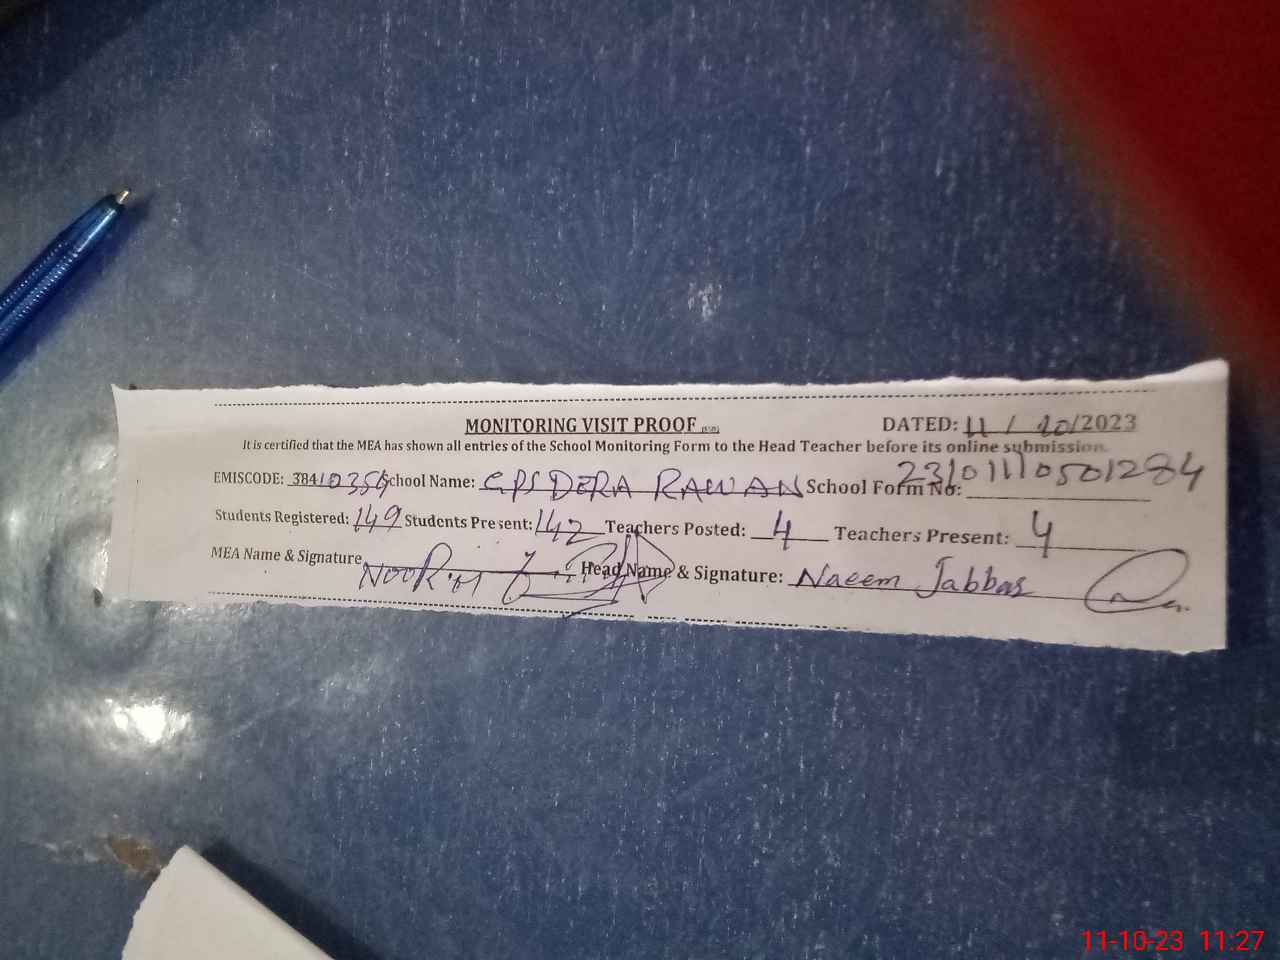 MONITORING VISIT PROOF DATED: 11 / 10/2023
It is certified that the MEA has shown all entries of the School Monitoring Form to the Head Teacher before its online submission.
EMISCODE: 38410354 School Name: GPS DERA RAWAN School Form No: 23101110501284
Students Registered: 149 Students Present: 142 Teachers Posted: 4 Teachers Present: 4
MEA Name & Signature NOOR M Head Name & Signature: Naeem Jabbar
11-10-23 11:27